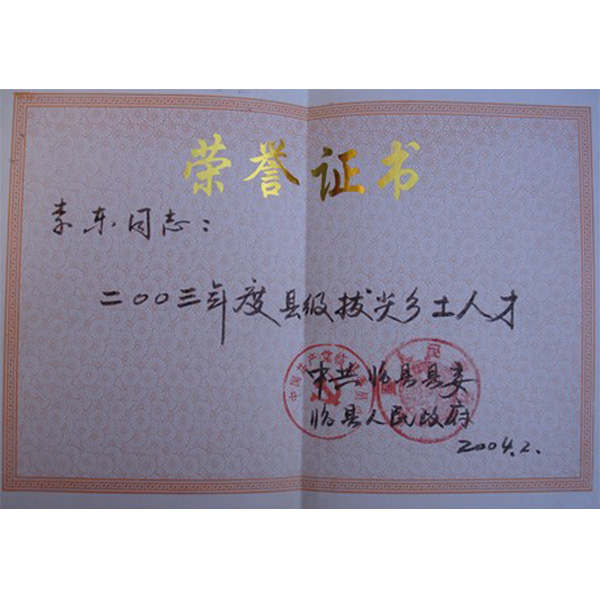 荣誉证书
李东同志：
二〇〇三年度县级拔尖乡土人才
中共临县县委
临县人民政府
2004.2.